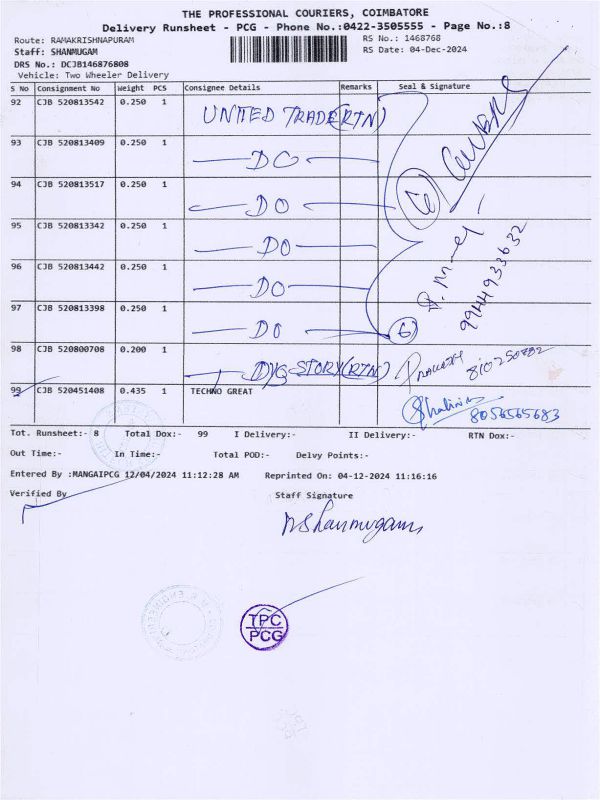 THE PROFESSIONAL COURIERS, COIMBATORE
Delivery Runsheet - PCG - Phone No.:0422-3505555 - Page No.:8
Route: RAMAKRISHNAPURAM
RS No.: 1468768
Staff: SHANMUGAM
RS Date: 04-Dec-2024
DRS No.: DCJB146876808
Vehicle: Two Wheeler Delivery
S No Consignment No Weight PCS Consignee Details Remarks Seal & Signature
92 CJB 520813542 0.250 1 UNITED TRADE (RTN)
93 CJB 520813409 0.250 1 DO
94 CJB 520813517 0.250 1 DO
95 CJB 520813342 0.250 1 DO
96 CJB 520813442 0.250 1 DO
9944933632
97 CJB 520813398 0.250 1 DO 6
98 CJB 520800708 0.200 1 STORY (RTN)
99 CJB 520451408 0.435 1 TECHNO GREAT
8056565683
Tot. Runsheet:- 8 Total Dox:- 99 I Delivery:- II Delivery:- RTN Dox:-
Out Time:- In Time:- Total POD:- Delvy Points:-
Entered By :MANGAIPCG 12/04/2024 11:12:28 AM Reprinted On: 04-12-2024 11:16:16
Verified By Staff Signature
nShanmugam
TPC
PCG